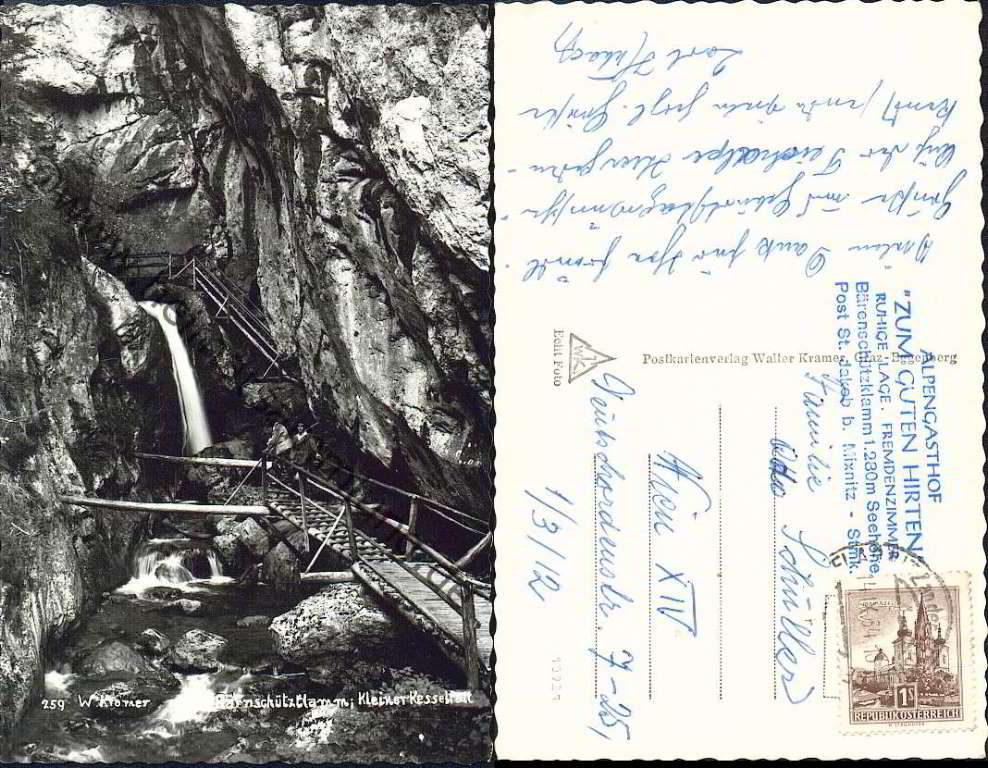 259 W. Kramer Bärnschützklamm; Kleiner Kesselfall
"ALPENGASTHOF
"ZUM GUTEN HIRTEN"
RUHIGE LAGE. FREMDENZIMMER
Bärenschützklamm 1.230m Seehöhe
Post St. Jakob b. Mixnitz - Stmk.
Vielen Dank für Ihre freundl.
Grüße und Geburtstagswünsche.
Auf der Teichalpe
Grüße
Postkartenverlag Walter Kramer, Graz-Eggenberg
WK
Echt Foto
Familie
Otto Schüller
Wien XIV
Deutschordenstr. 7-25,
1/3/12
1S
REPUBLIK ÖSTERREICH